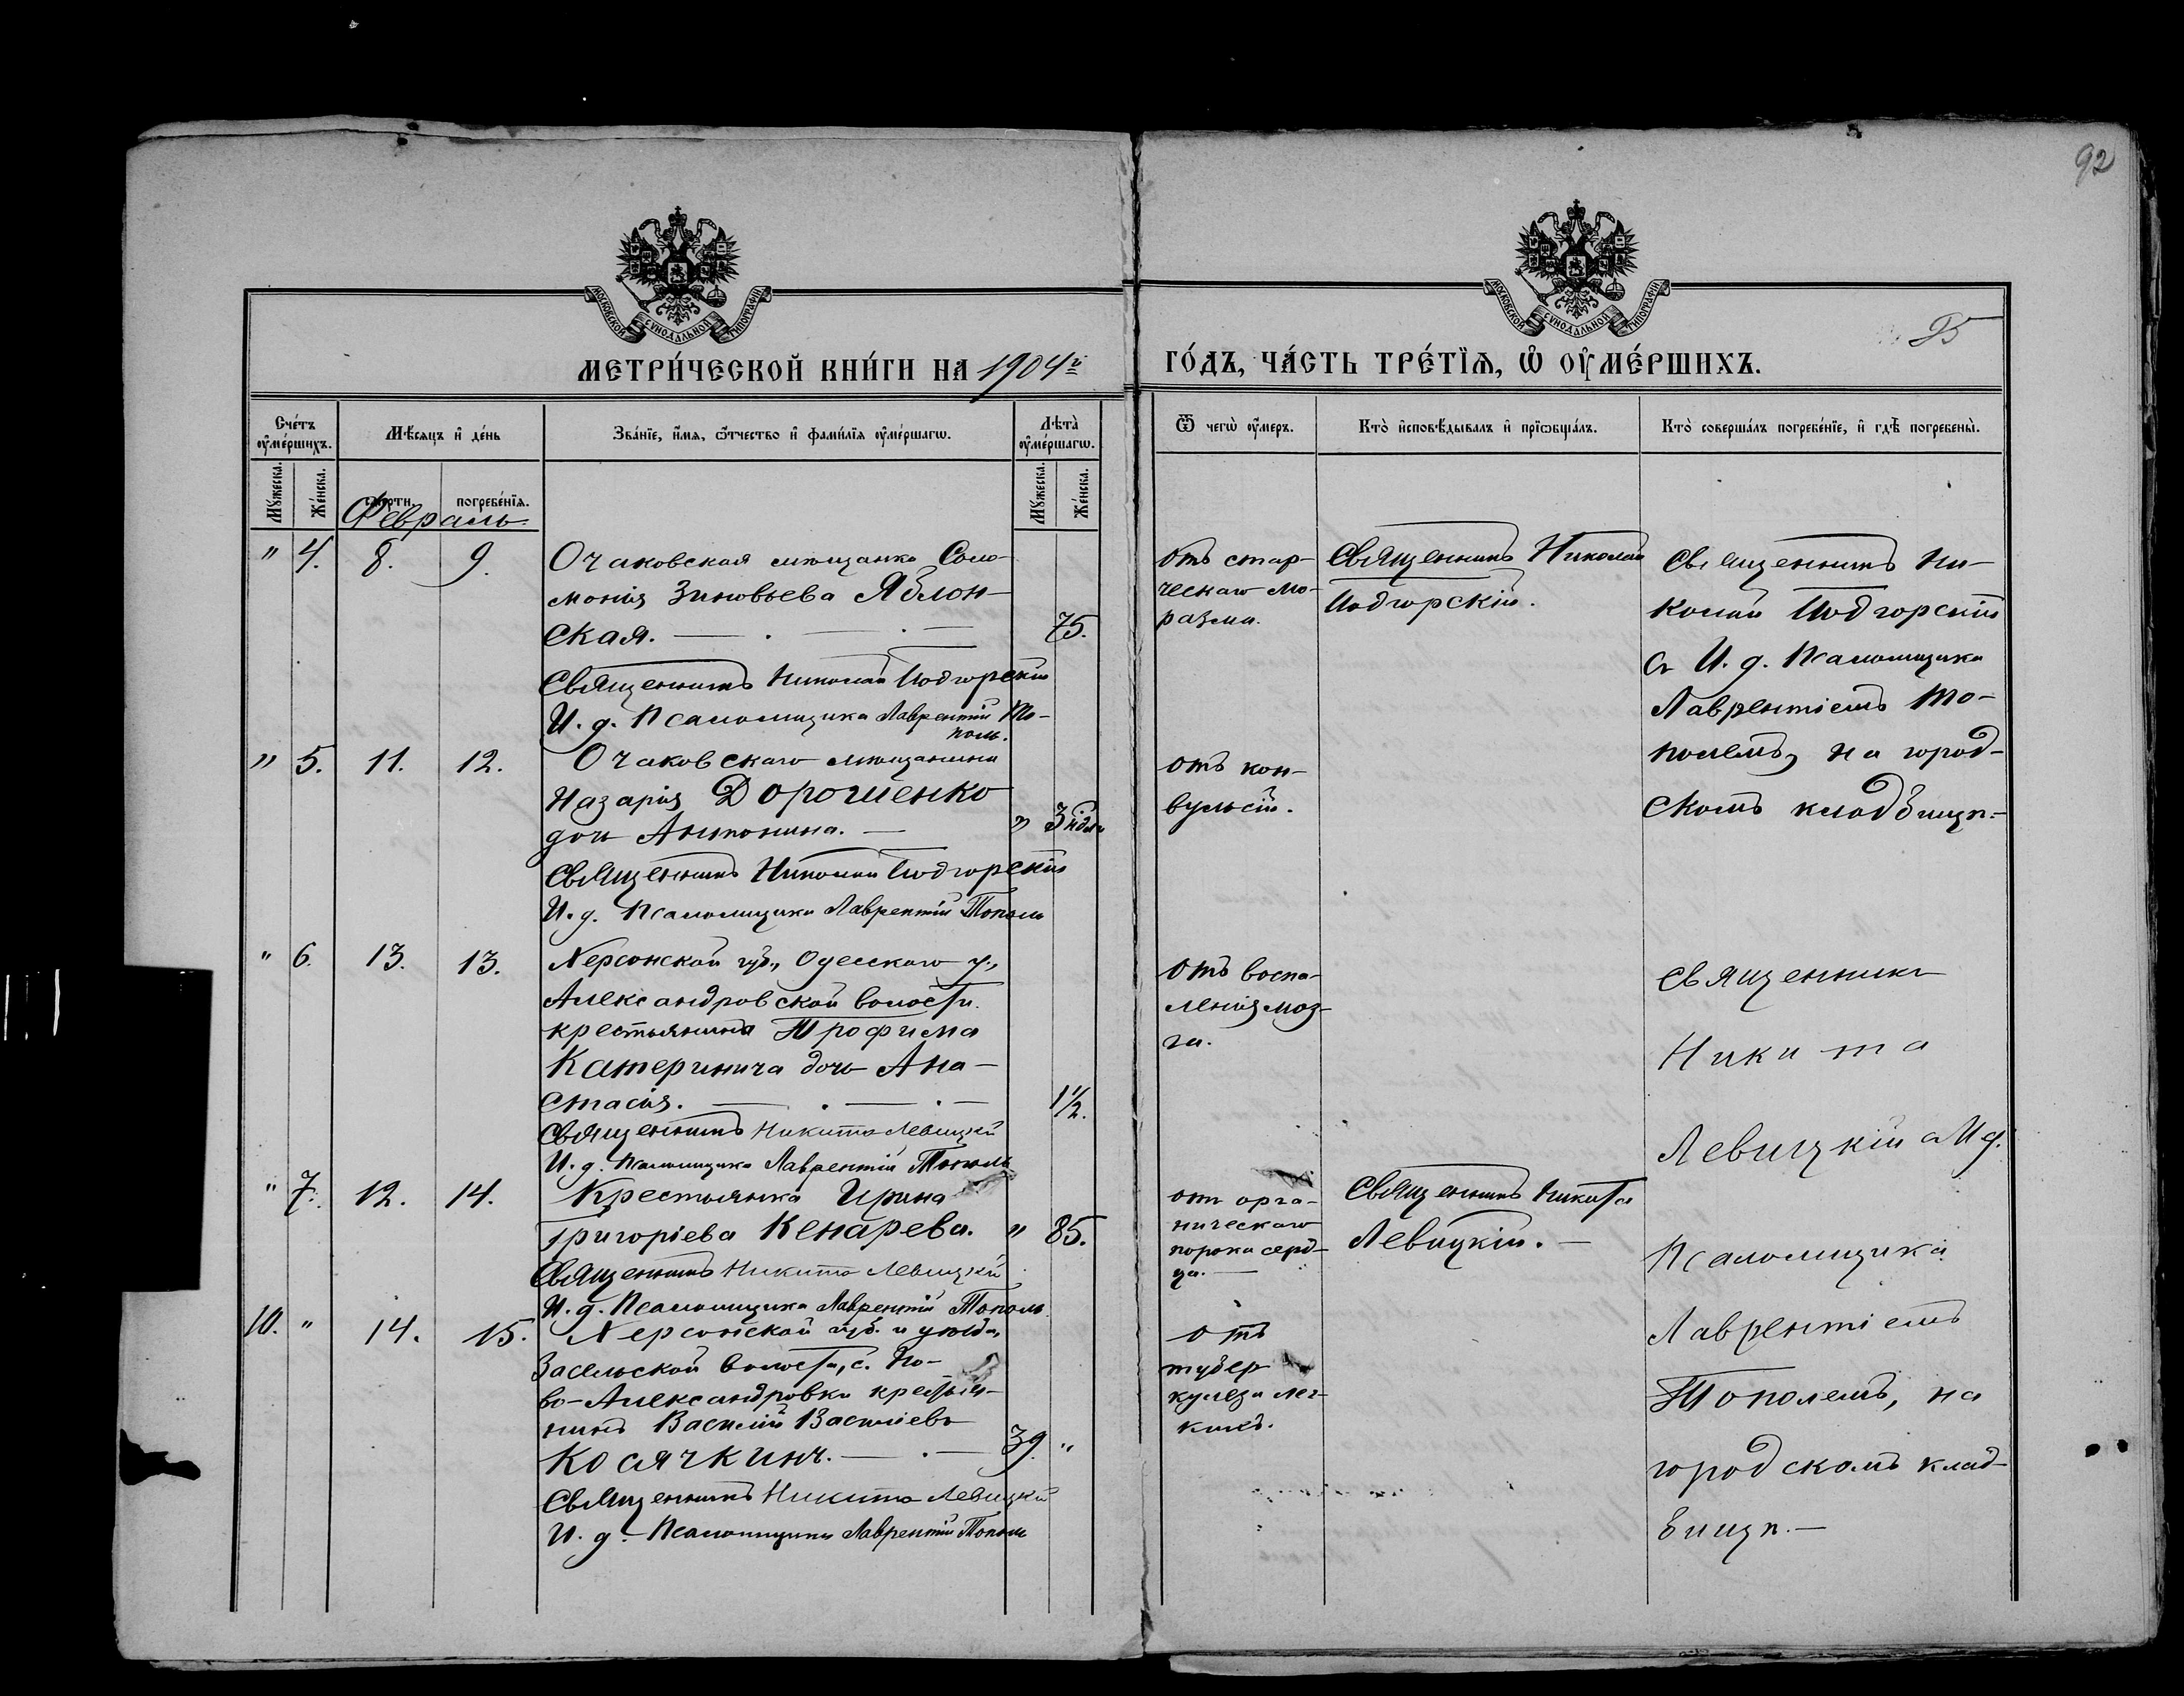 92
МОСКОВСКОЙ СѴНОДАЛЬНОЙ ТИПОГРАФІИ
МОСКОВСКОЙ СѴНОДАЛЬНОЙ ТИПОГРАФІИ
МЕТРИ́ЧЕСКОЙ КНИ́ГИ НА 1904й
ГО́ДЪ, ЧА́СТЬ ТРЕ́ТЇѦ, Ѡ҆ ОУ҆МЕ́РШИХЪ.
Сче́тъ оу҆ме́ршихъ.
Мѣ́сяцъ и҆ де́нь
Зва́нїе, и҆́мя, ѻ҆́тчество и҆ фами́лїя оу҆ме́ршагѡ.
Лѣта̀ оу҆ме́ршагѡ.
Ѿ чегѡ̀ оу҆́меръ.
Кто̀ и҆сповѣ́дывалъ и҆ прїѡбща́лъ.
Кто̀ соверша́лъ погребе́нїе, и҆ гдѣ̀ погребены̀.
Мꙋ́жеска.
Же́нска.
сме́рти
погребе́нїя.
Мꙋ́жеска.
Же́нска.
Февраль.
" 4. 8. 9.
Очаковская мѣщанка Соло-
монія Зиновьева Яблон-
ская. 75.
Священникъ Николай Подгорскій
И. д. Псаломщика Лаврентій То-
поль.
отъ стар-
ческаго ма-
разма.
Священникъ Николай
Подгорскій.
Священникъ Ни-
колай Подгорскій
съ И. д. Псаломщика
Лаврентіемъ То-
полемъ, на город-
скомъ кладбищѣ.
" 5. 11. 12.
Очаковскаго мѣщанина
Назарія Дорошенко
дочь Антонина. " 3 нѣдли
Священникъ Николай Подгорскій
И. д. Псаломщика Лаврентій Тополь
отъ кон-
вульсій.
" 6. 13. 13.
Херсонской губ., Одесскаго у.,
Александровской волости.
крестьянина Трофима
Катеринича дочь Ана-
стасія. 1½.
Священникъ Никита Левицкій
И. д. Псаломщика Лаврентій Тополь
отъ воспа-
ленія моз-
га.
Священникъ
Никита
Левицкій съ И д.
Псаломщика
Лаврентіемъ
Тополемъ, на
городскомъ клад-
бищѣ.
" 7. 12. 14.
Крестьянка Ирина
Григоріева Кенарева. " 85.
Священникъ Никита Левицкій
И. д. Псаломщика Лаврентій Тополь
отъ орга-
ническаго
порока серд-
ца.
Священникъ Никита
Левицкій.
10. " 14. 15.
Херсонской губ. и уѣзда,
Засельской волости, с. Но-
во-Александровки крестья-
нинъ Василій Васильевъ
Косячкинъ. 39. "
Священникъ Никита Левицкій
И. д. Псаломщика Лаврентій Тополь
отъ
тубер
кулеза лег-
кихъ.